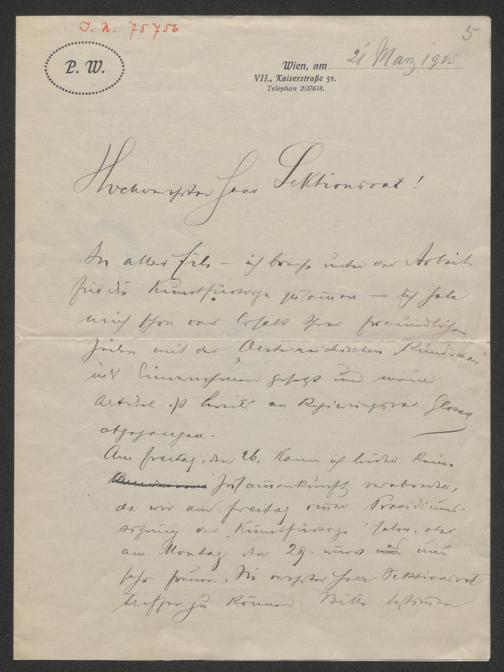 I. N. 75756
5
P. W.
Wien, am 21 März 1915
VII., Kaiserstraße 51.
Telephon 2/37618.
Hochverehrter Herr Sektionsrat!
In aller Eile – ich breche unter der Arbeit
für die Kunstfürsorge zusammen – ich habe
mich schon vor Erhalt Ihrer freundlichen
Zeilen mit der „Oesterreichischen Rundschau
ins Einvernehmen gesetzt und meine
Artikel ist bereits an Regierungsrat Glossy
abgegangen.
Am Freitag, den 26. kann ich leider keine
Zusammenkunft verabreden,
da wir am Freitag eine Präsidiums-
sitzung der „Kunstfürsorge" haben, aber
am Montag den 29. würde mich
sehr freuen, Sie verehrter Herr Sektionsrat
treffen zu können. Bitte bestimmen